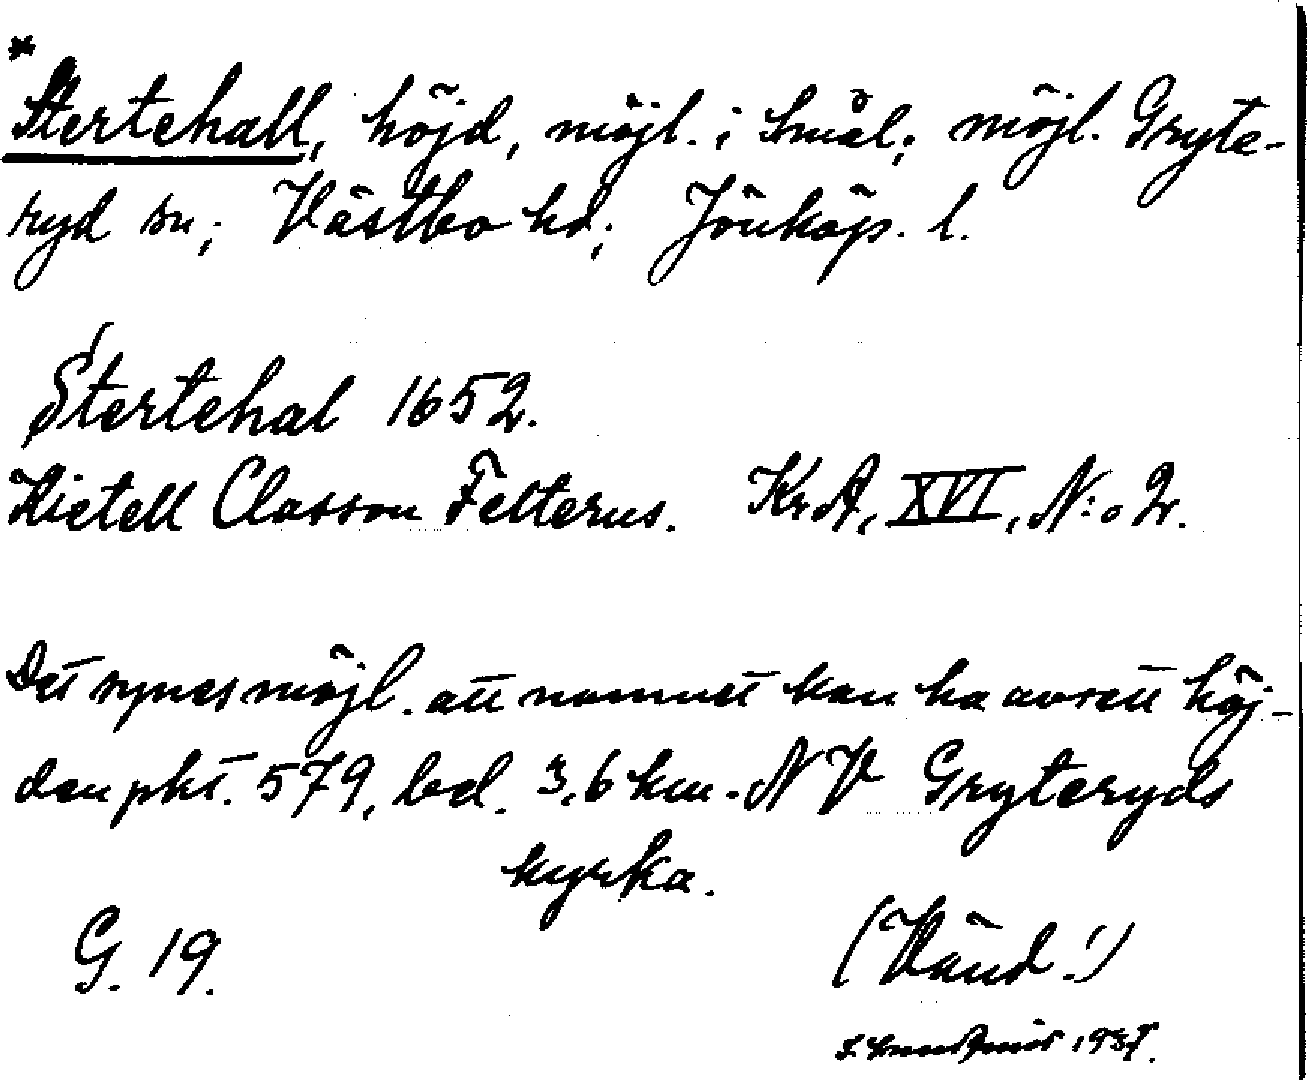 *
Stertehall, höjd, möjl. i Smål; möjl. Gryte-
ryd sn; Västbo hd; Jönköp. l.
Stertehal 1652.
Kietell Classon Felterus. KrA, XVI, N:o 2.
Det synes möjl. att namnet kan ha avsett höj-
den pkt. 579, bel. 3,6 km. NV Gryteryds
kyrka.
G. 19.
(Vänd!)
1937.